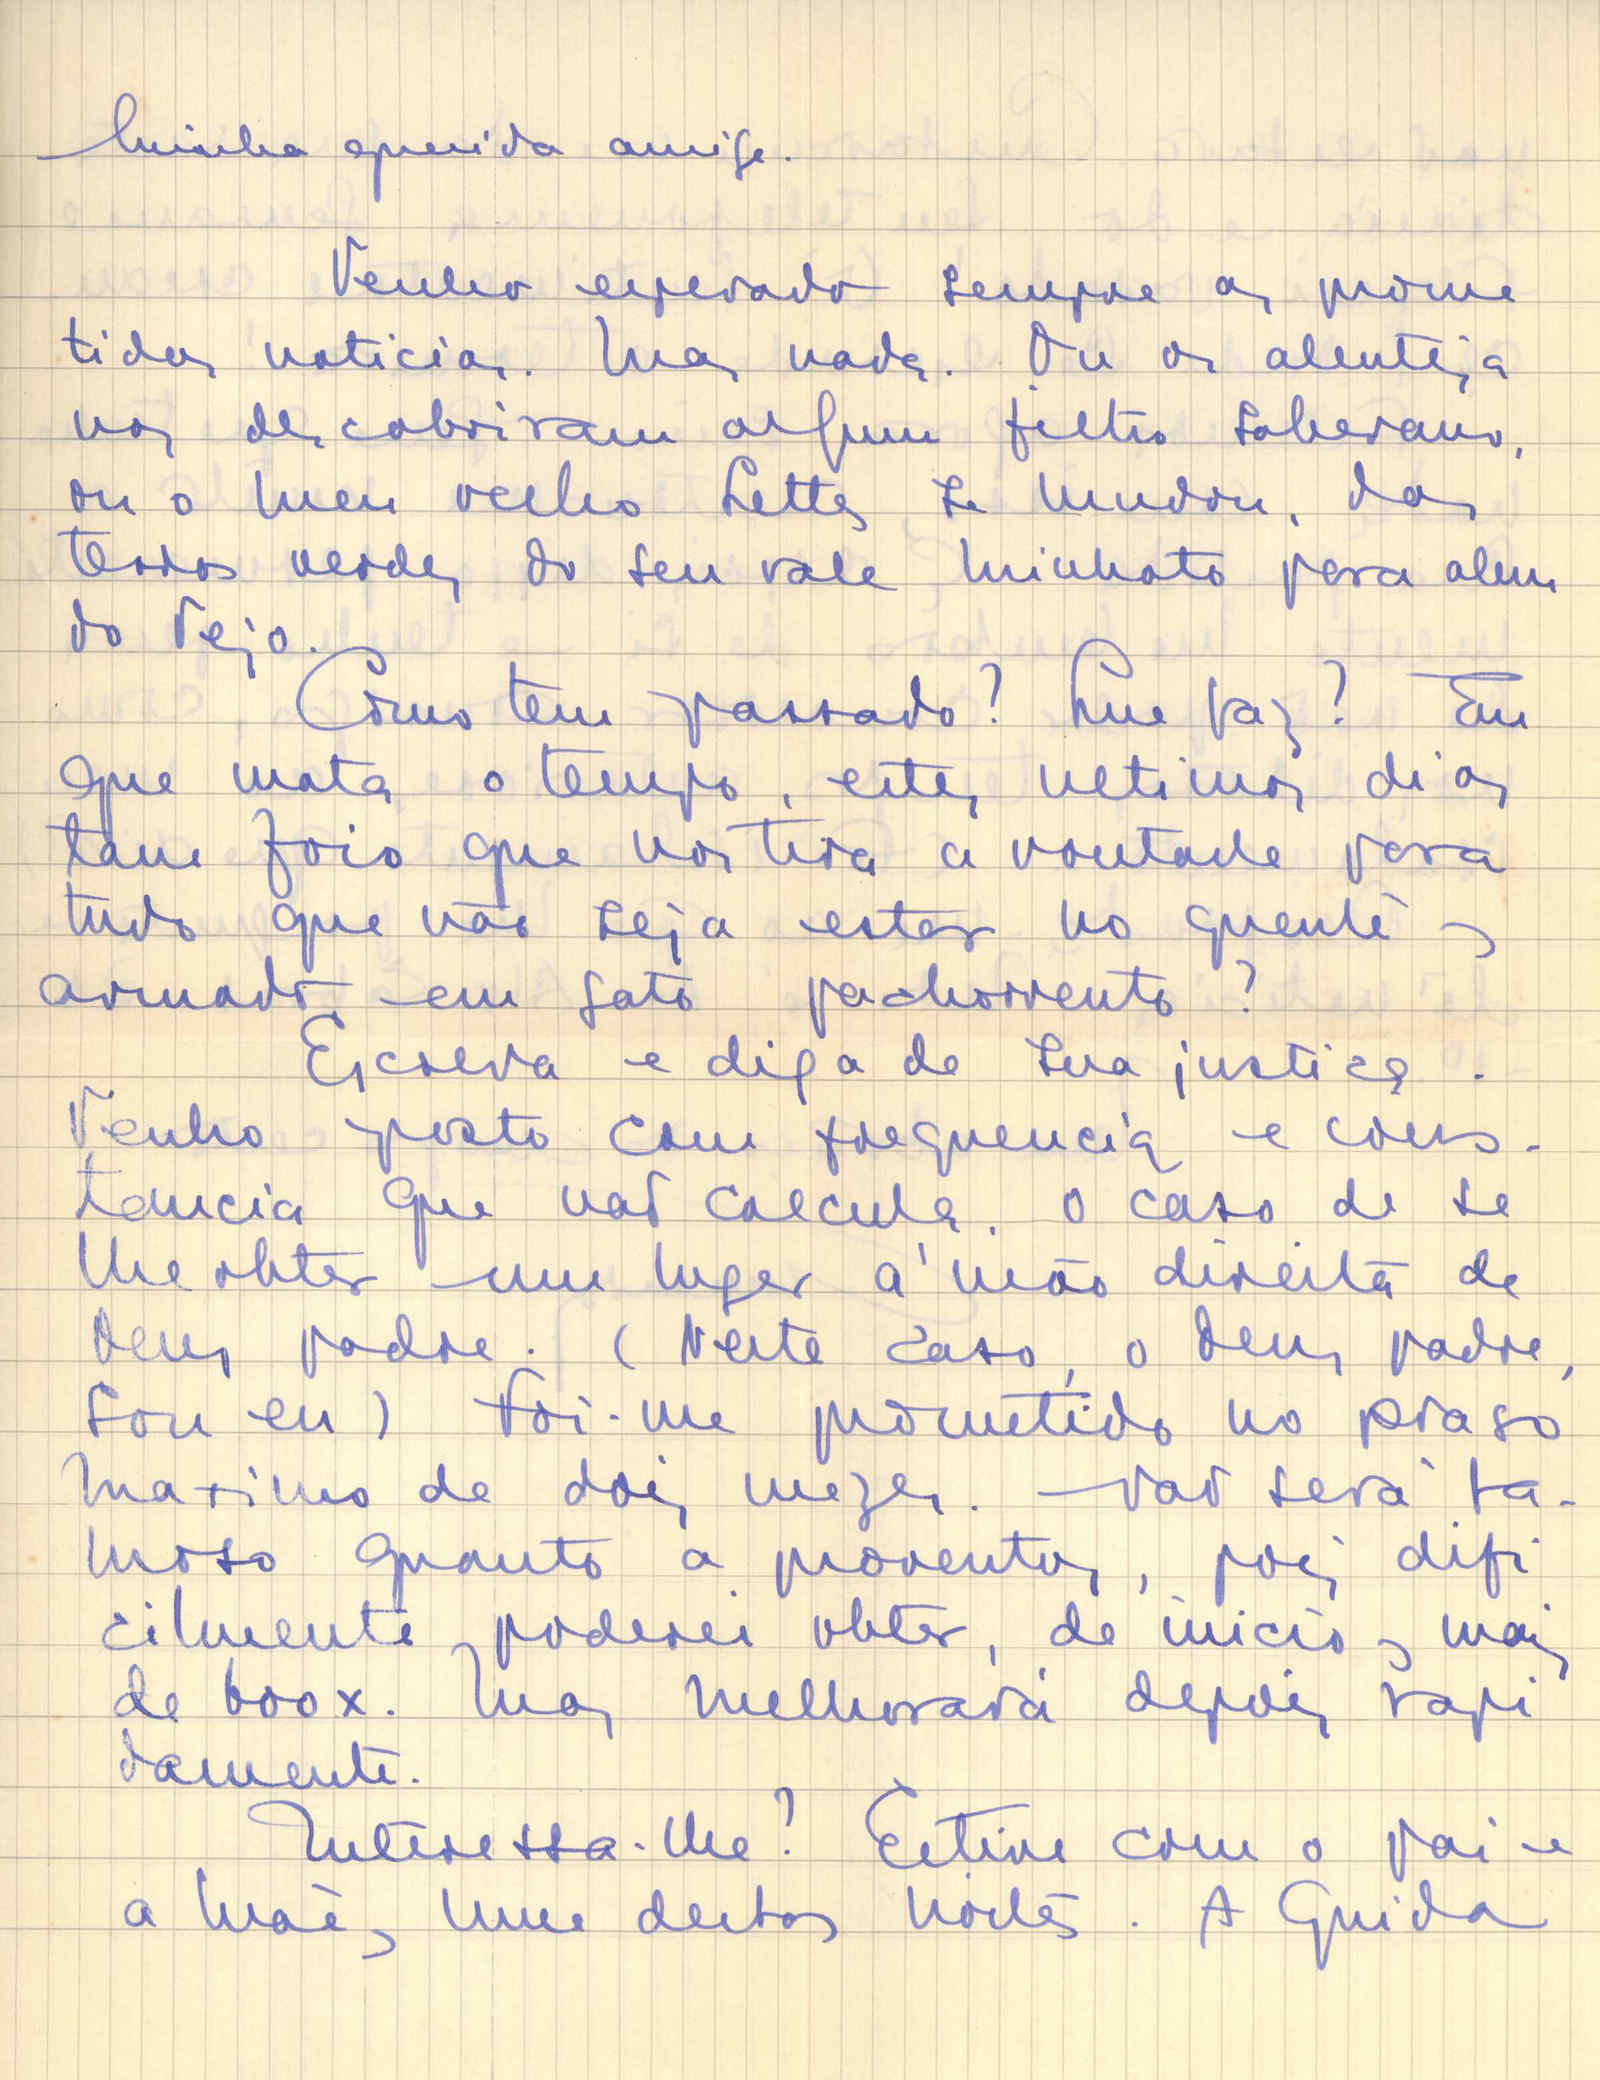 Minha querida amiga.
Tenho esperado sempre as prome
tidas noticias. Mas nada. Ou os alenteja
nos descobriram algum filtro soberano,
ou o meu velho Lettes se mudou, das
terras verdes do seu vale minhoto para alem
do Tejo.
Como tem passado? Que faz? Em
que mata o tempo, estes ultimos dias
tam frios que nos tira a vontade para
tudo que não seja estar no quente,
armado em gato pachorrento?
Escreva e diga de sua justiça.
Tenho posto com frequencia e cons-
tancia que não calcula, o caso de se
lhe obter um lugar á mão direita de
Deus padre. (Neste caso, o Deus padre,
sou eu) Foi-me prometido no praso
maximo de dois mezes. Não será fa-
moso quanto a proventos, pois difi
cilmente poderei obter, de inicio, mais
de 600x. Mas melhorará depois rapi
damente.
Interessa-lhe? Estive com o pai e
a mãe, uma destas noites. A Guida